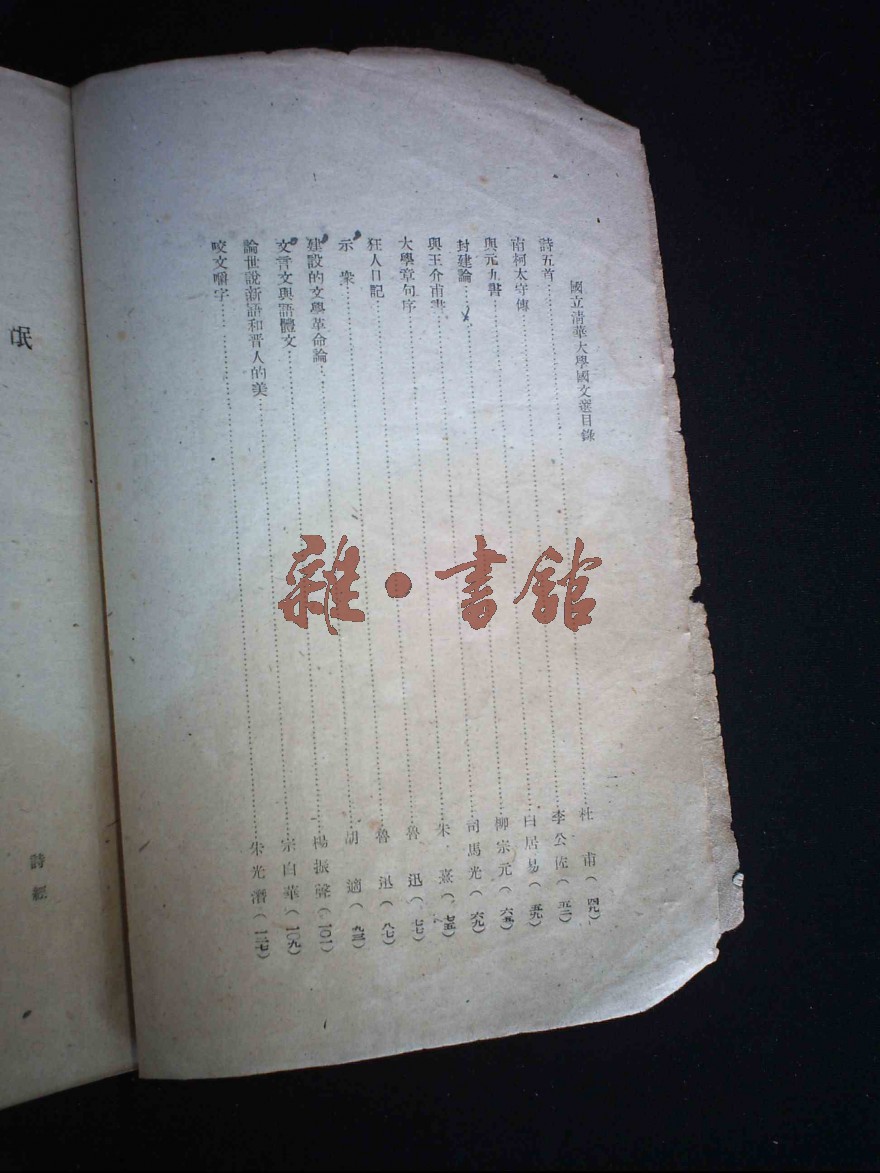 國立清華大學國文選目錄
詩五首 杜甫（四九）
南柯太守傳 李公佐（五三）
與元九書 白居易（五九）
封建論 柳宗元（六五）
與王介甫書 司馬光（六九）
大學章句序 朱熹（七五）
狂人日記 魯迅（七七）
示眾 魯迅（八七）
建設的文學革命論 胡適（九三）
文言文與語體文 楊振聲（一〇一）
論世說新語和晋人的美 宗白華（一〇九）
咬文嚼字 朱光潛（一二七）
雜·書館
氓
詩經